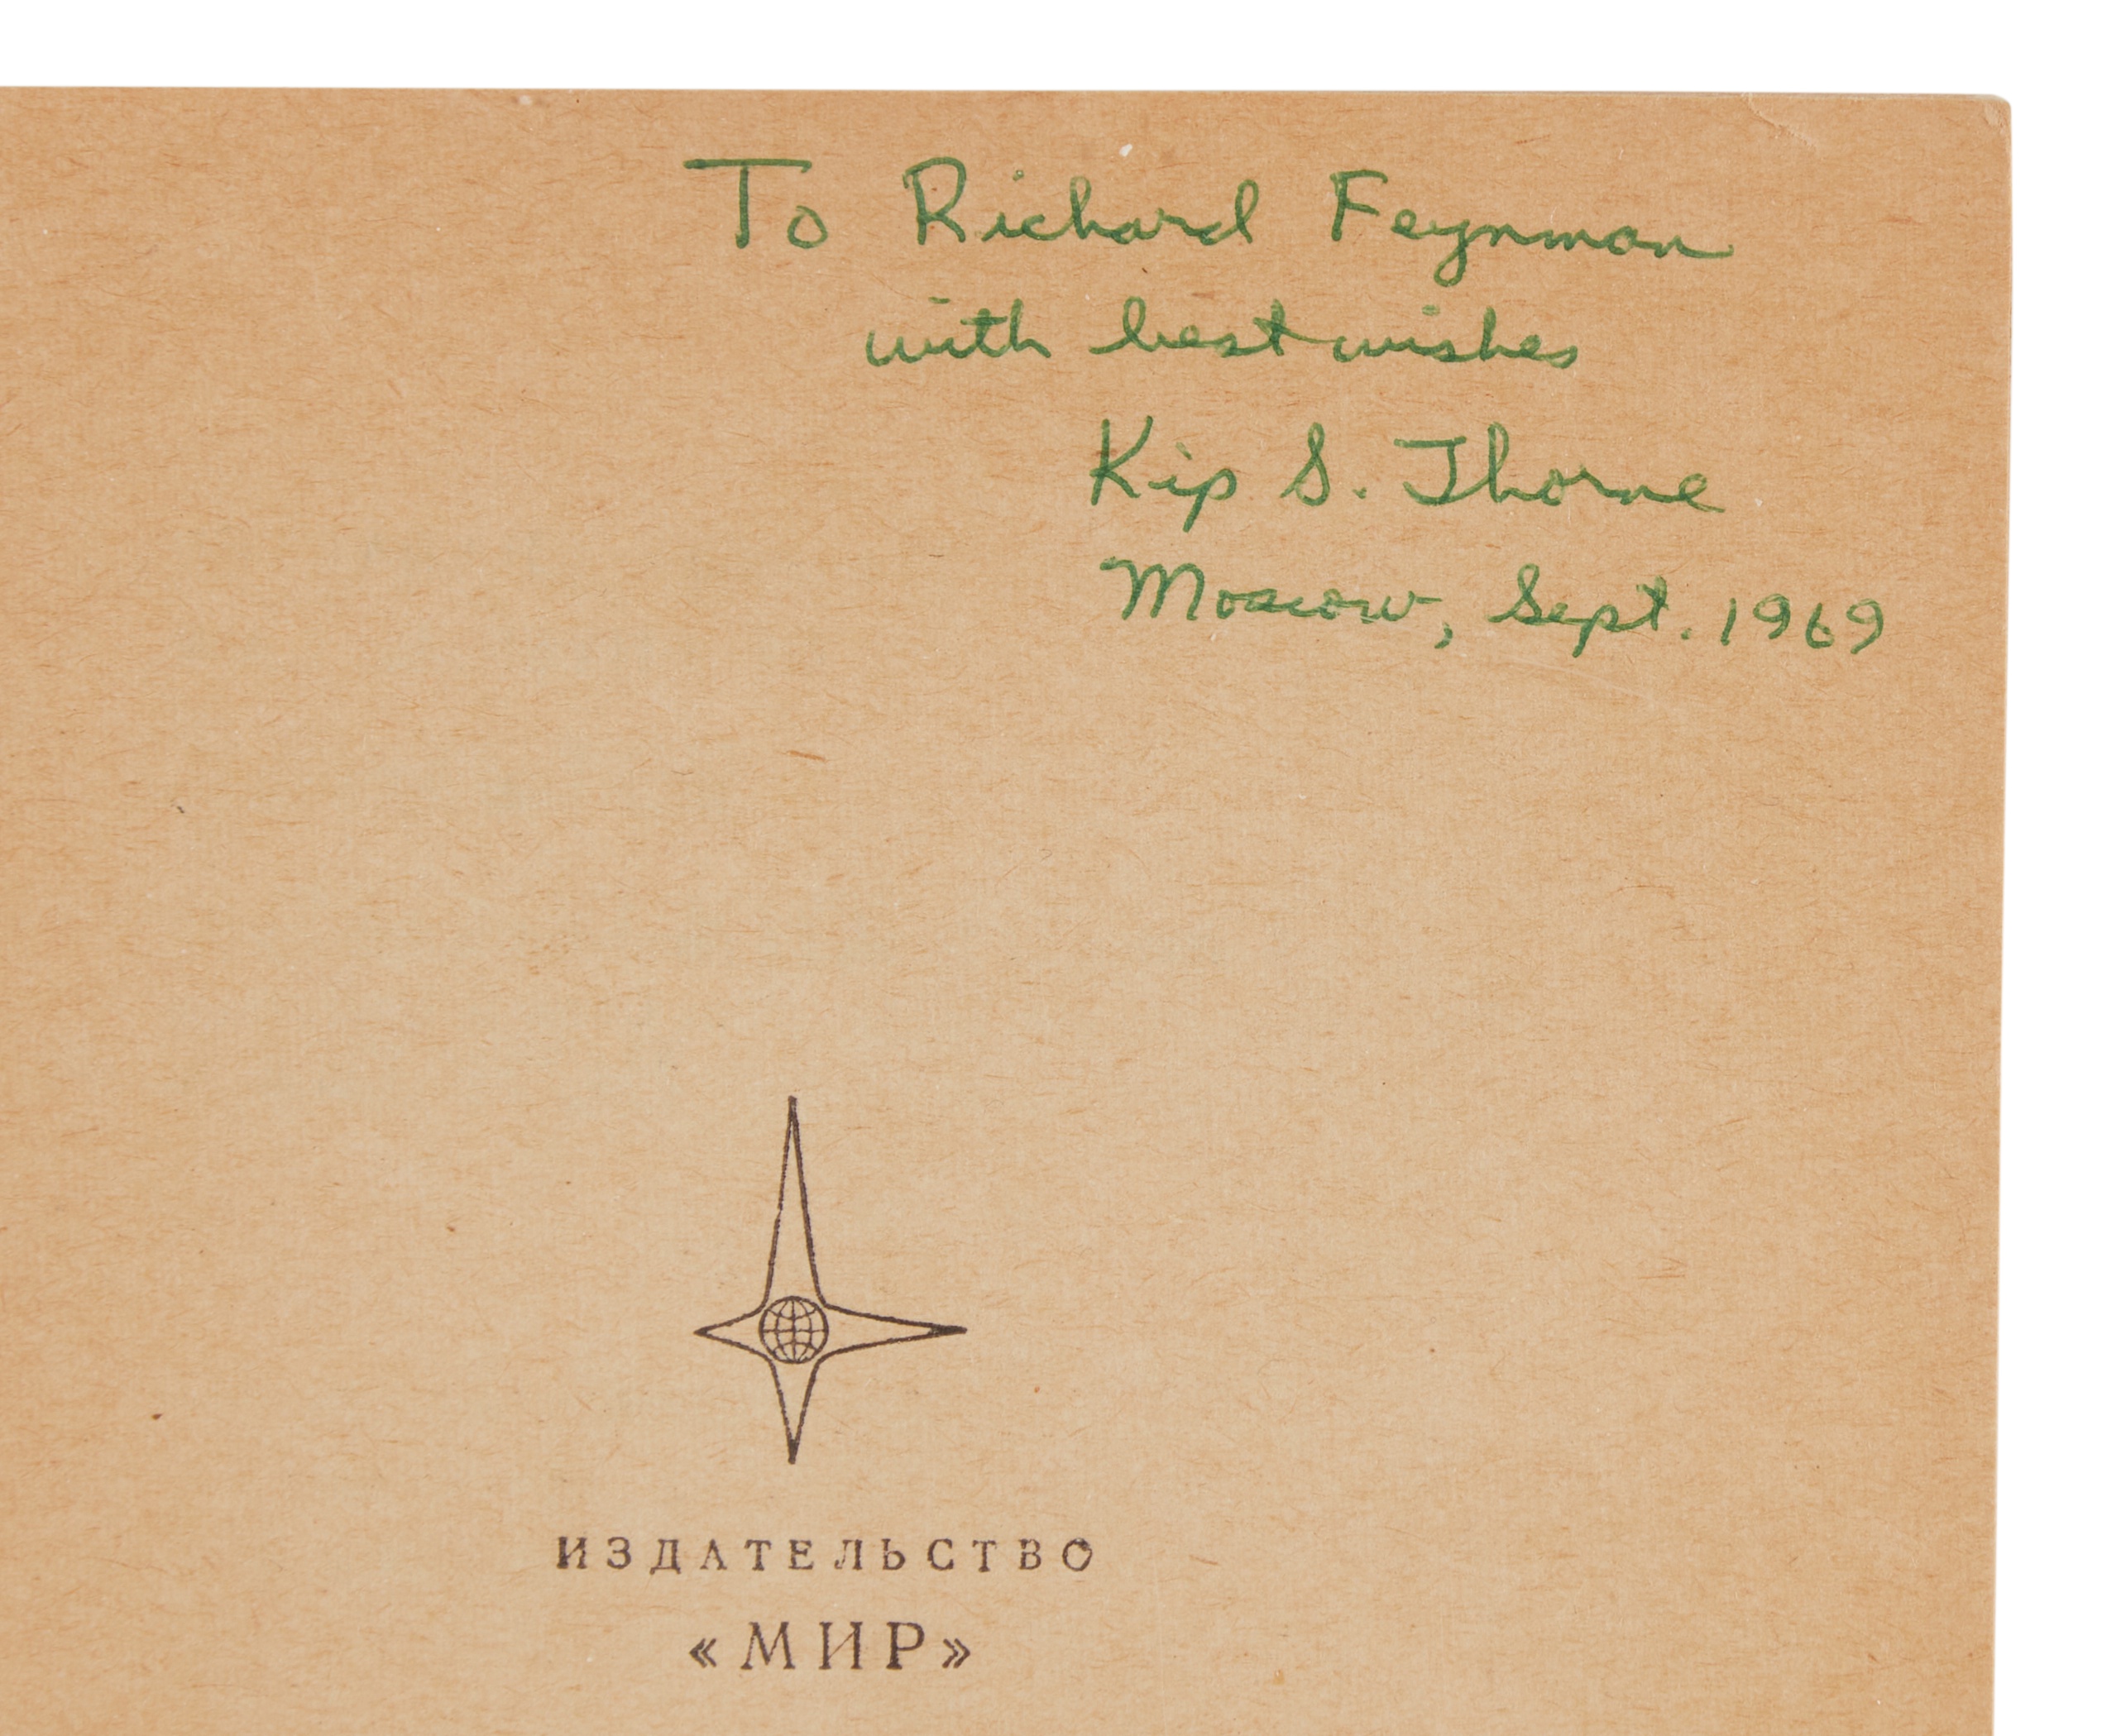 To Richard Feynman
with best wishes
Kip S. Thorne
Moscow, Sept. 1969
ИЗДАТЕЛЬСТВО
«МИР»